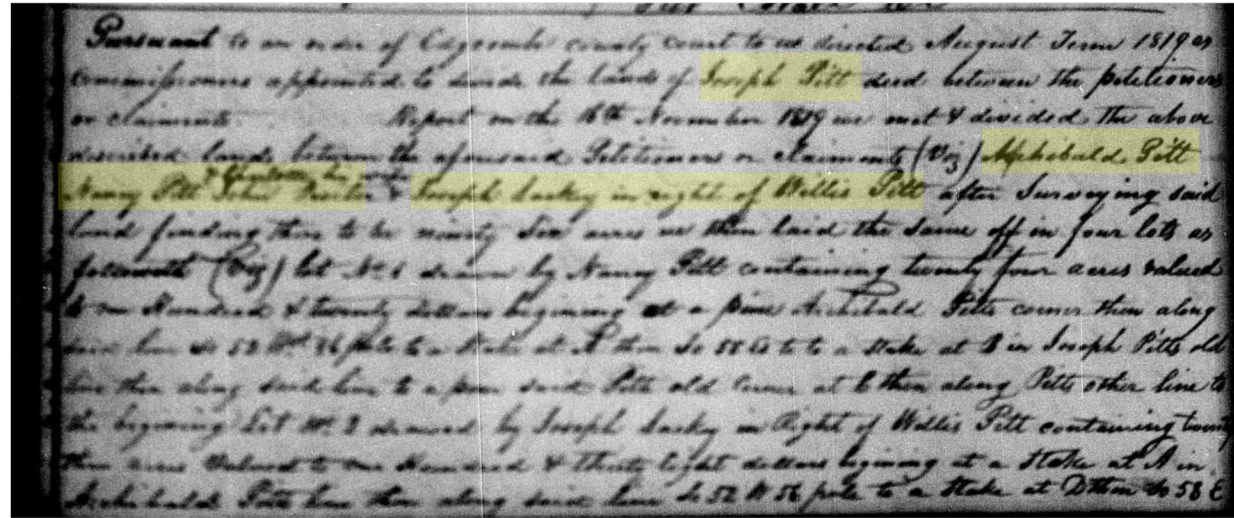 Pursuant to an order of Edgecomb county court to us directed August Term 1819 as
commissioners appointed to divide the lands of Joseph Pitt decd between the petitioners
or claimants. Report on the 16th November 1819 we met & divided the above
described lands between the aforesaid Petitioners or claimants (Viz) Archibald Pitt
& his wife
Nancy Pitt John & Joseph in right of Willis Pitt after Surveying said
land finding there to be ninety Six acres we then laid the same off in four lots as
followeth (Viz) lot No. 1 drawn by Nancy Pitt containing twenty four acres valued
to one Hundred & twenty dollars begining at a pine Archibald Pitts corner then along
said line So 52 Wt 36 pole to a Stake at A then So 58 Et to a Stake at B in Joseph Pitts old
line then along said line to a pine said Pitt old Corner at C then along Pitts other line to
the begining Lot No. 2 drawed by Joseph in Right of Willis Pitt containing twenty
three acres Valued to one Hundred & thirty Eight dollars begining at a Stake at A in
Archibald Pitts line then along said line So 52 W 56 pole to a Stake at D then So 58 E